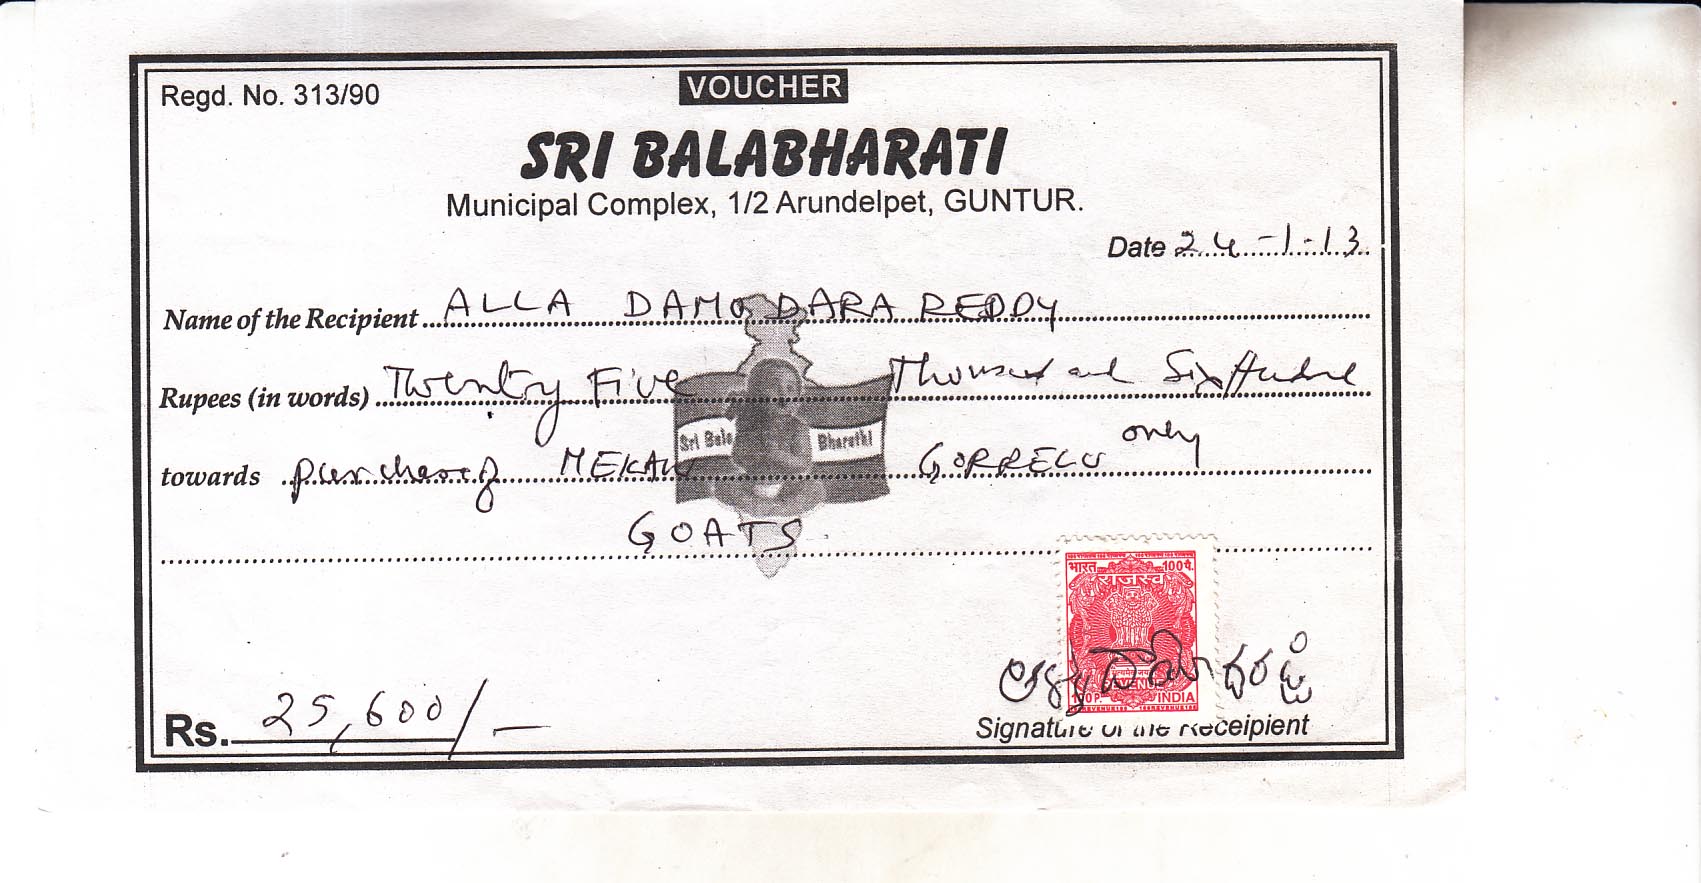 VOUCHER
Regd. No. 313/90
SRI BALABHARATI
Municipal Complex, 1/2 Arundelpet, GUNTUR.
Date 24-1-13
Name of the Recipient ALLA DAMODARA REDDY
Rupees (in words) Twenty Five Thousand and Six Hundred
only
towards purchase of MEKALU GORRELU
Sri Bala Bharathi
GOATS
भारत 100 पै.
राजस्व
REVENUE
100 P. INDIA
Rs. 25,600/-
Signature of the Receipient